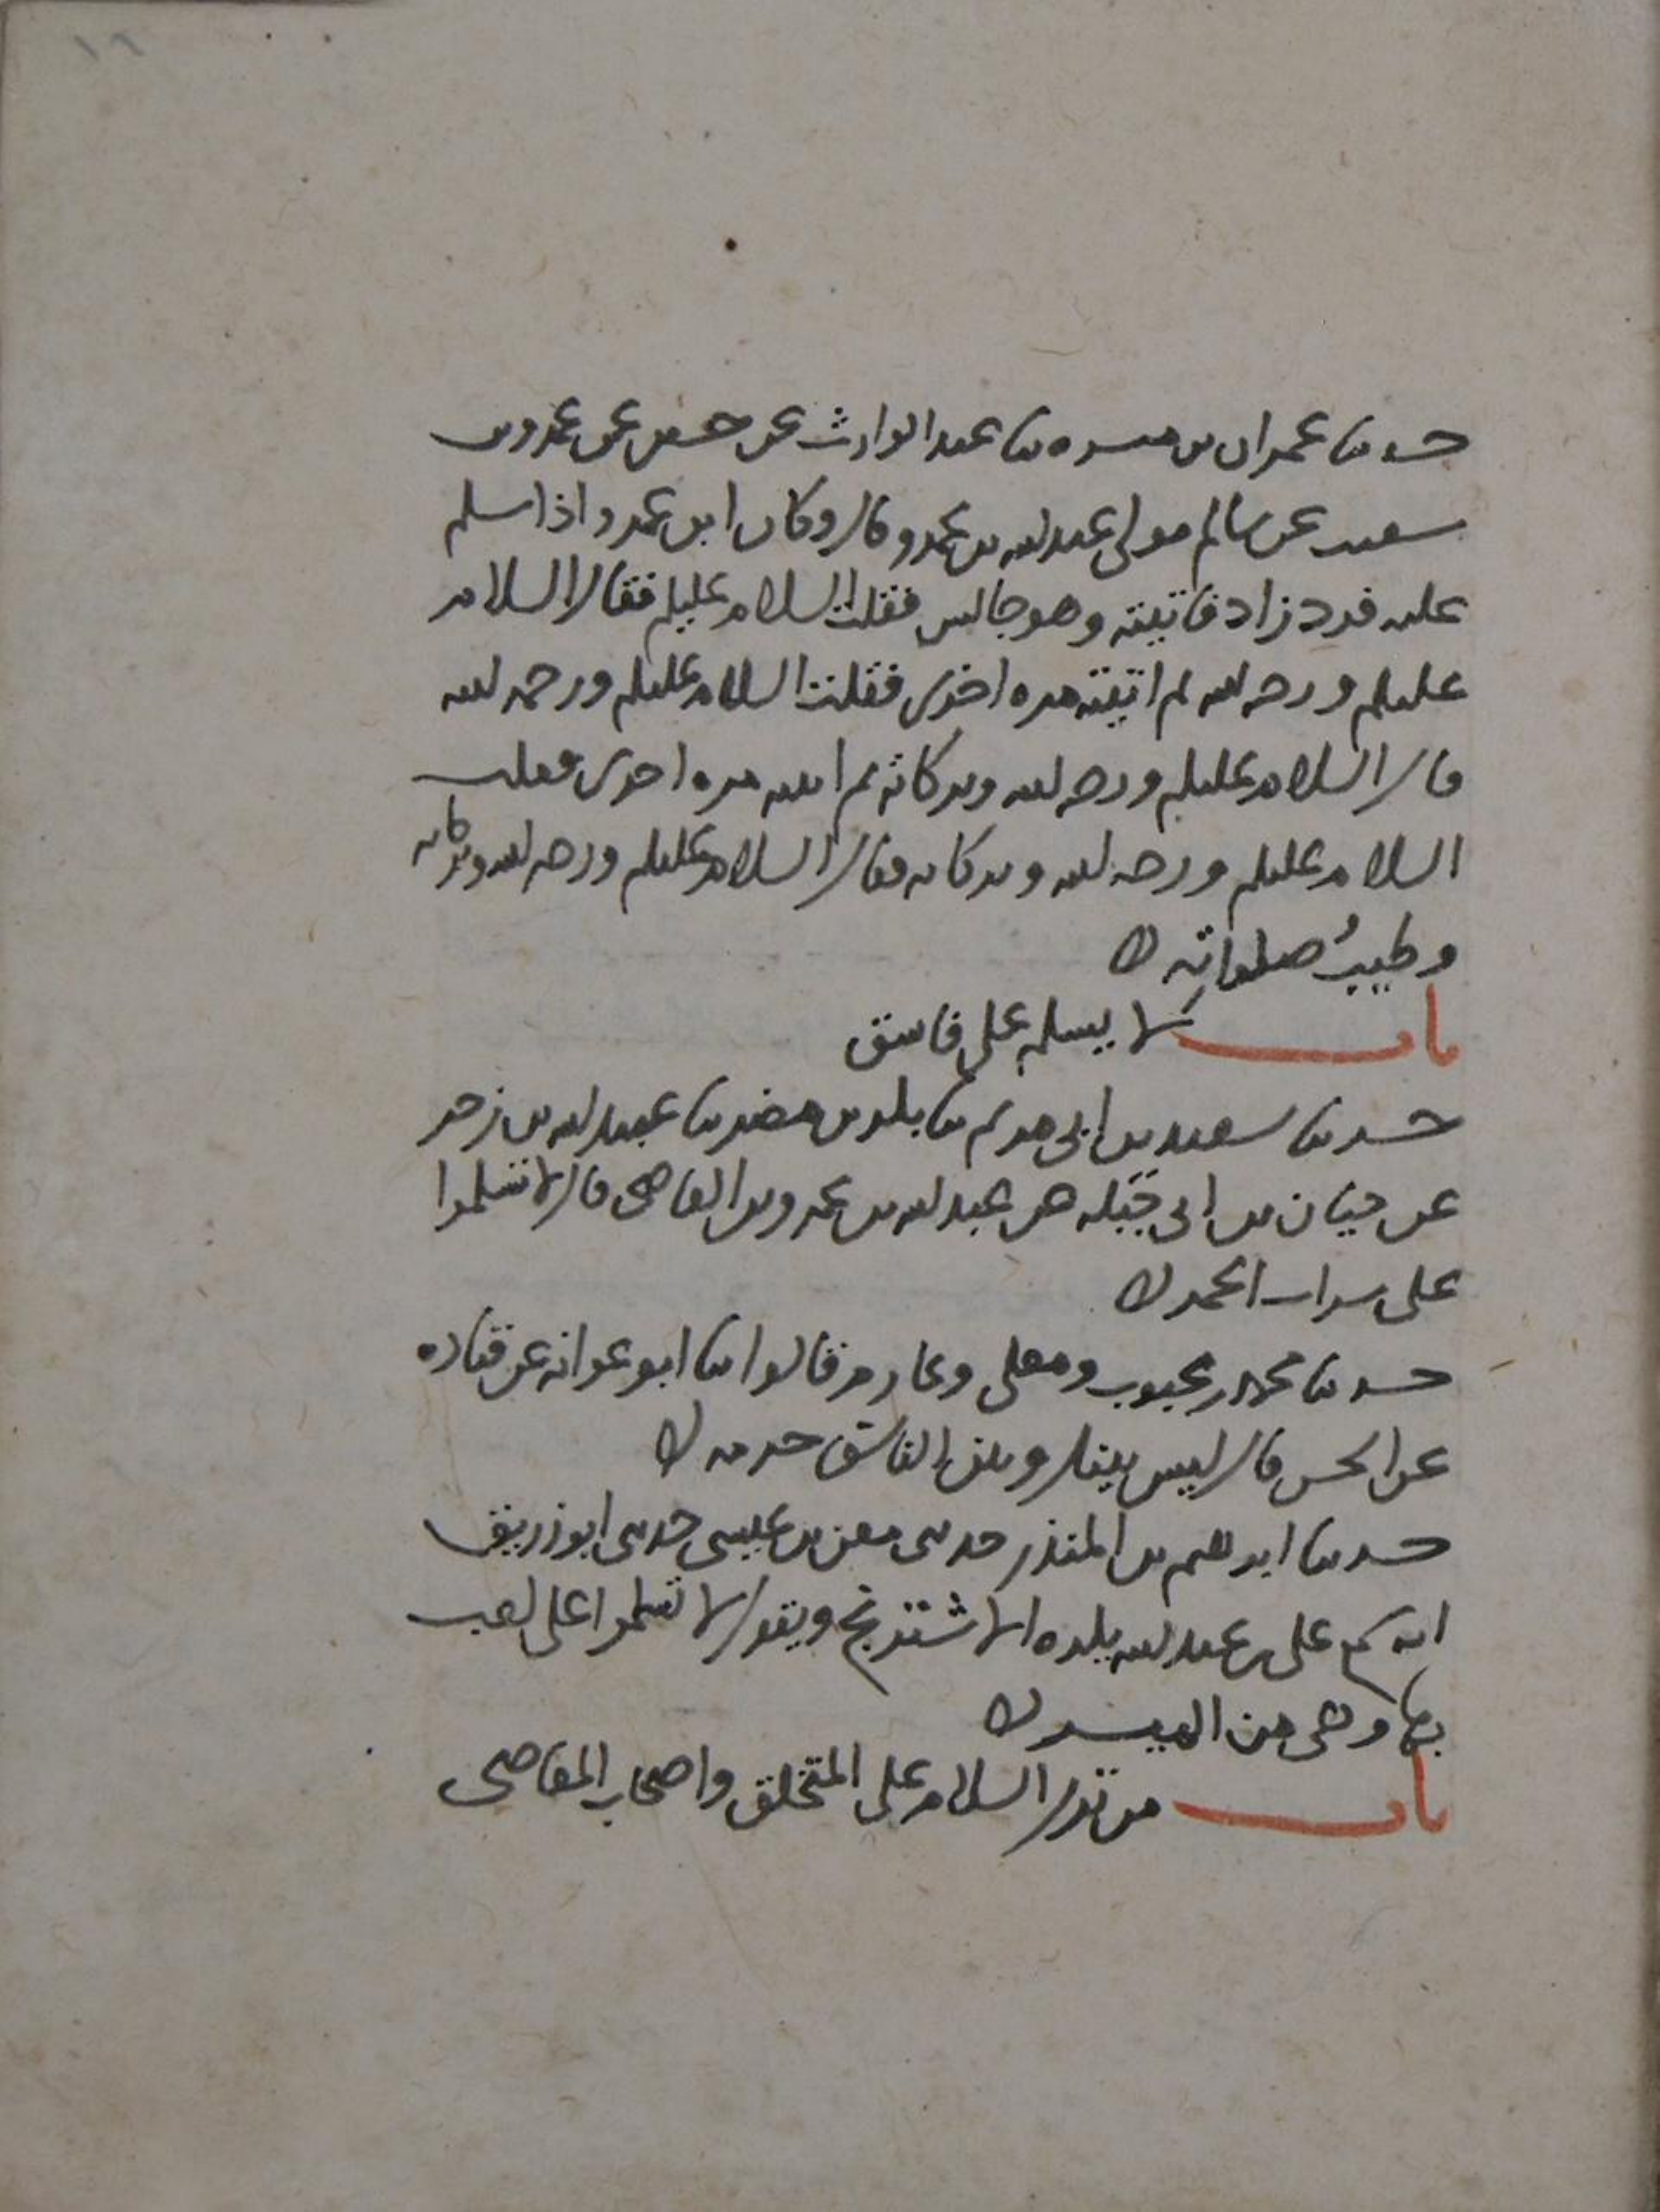 ١٦
حدثنا عمران بن ميسره ثنا عبد الوارث عن حسين عن عمرو بن
سعيد عن سالم مولى عبد الله بن عمرو قال وكان ابن عمرو اذا سلم
عليه فرد زاد فاتيته وهو جالس فقلت السلام عليكم فقال السلام
عليكم ورحمه الله ثم اتيته مره اخرى فقلت السلام عليكم ورحمه الله
قال السلام عليكم ورحمه الله وبركاته ثم اتيته مره اخرى فقلت
السلام عليكم ورحمه الله وبركاته فقال السلام عليكم ورحمه الله وبركاته
وطيبُ صلواته
باب لا يسلم على فاسق
حدثنا سعيد بن ابى مريم ثنا بكر بن مضر ثنا عبيد الله بن زحر
عن حبان بن ابى جبله عن عبد الله بن عمرو بن العاصى قال لا تسلموا
على شراب الخمر
حدثنا محمد بن محبوب ومعلى وعارم قالوا ثنا ابو عوانه عن قتاده
عن الحسن قال ليس بينك وبين الفاسق حرمه
حدثنا ابرهيم بن المنذر حدثنى معن بن عيسى حدثنى ابو زريق
انه سمع على بن عبد الله يكره الاشترنج ويقول لا تسلموا على لعب
بها وهى من الميسر
باب من ترك السلام على المتخلق واصحاب المعاصى